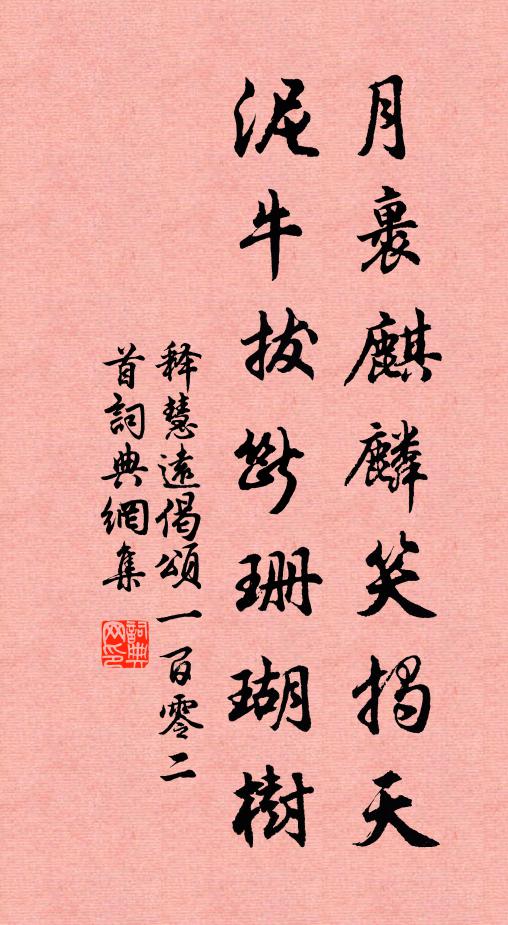 月裏麒麟笑揭天
泥牛拔斷珊瑚樹
释慧遠偈頌一百零二
首詞典網集
詞典网印